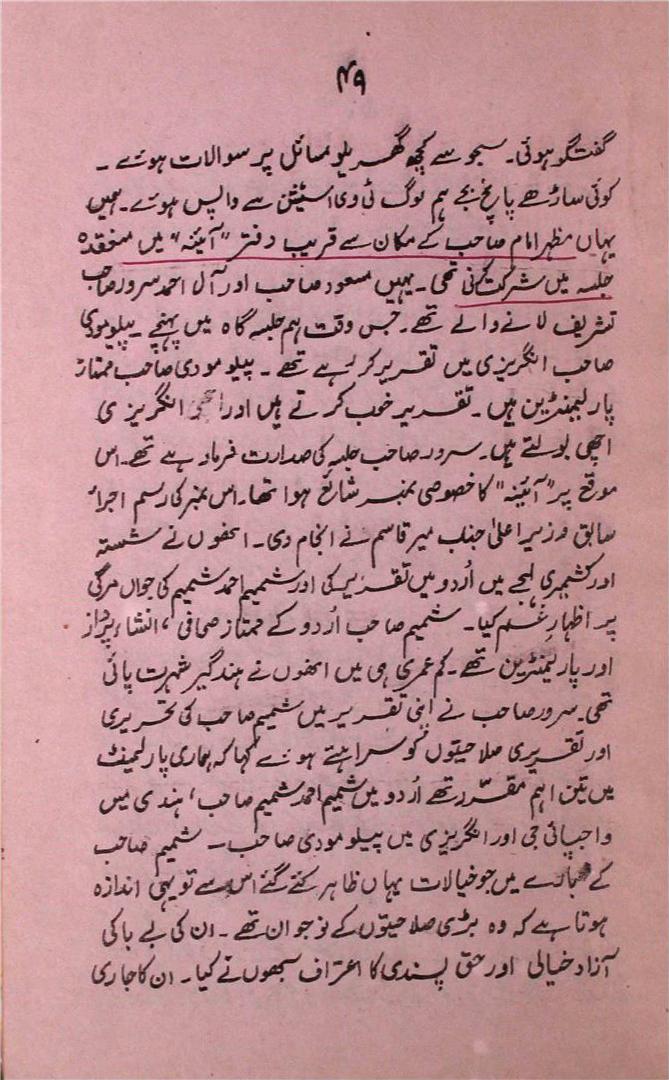 ۴۹
گفتگو ہوئی۔ سبجو سے کچھ گھریلو مسائل پر سوالات ہوئے ۔
کوئی ساڑھے پانچ بجے ہم لوگ ٹی وی اسٹیشن سے واپس ہوئے۔ ہمیں
یہاں مظہر امام صاحب کے مکان سے قریب دفتر "آئینہ" میں منعقدہ
جلسہ میں شرکت کرنی تھی۔ یہیں مسعود صاحب اور آل احمد سرور صاحب
تشریف لانے والے تھے۔ جس وقت ہم جلسہ گاہ میں پہنچے ۔ پیلو مودی
صاحب انگریزی میں تقریر کر رہے تھے ۔ پیلو مودی صاحب ممتاز
پارلیمنٹرین ہیں ۔ تقریر خوب کرتے ہیں اور انگریزی
اچھی بولتے ہیں۔ سرور صاحب جلسہ کی صدارت فرما رہے تھے۔ اس
موقع پر "آئینہ" کا خصوصی نمبر شائع ہوا تھا۔ اس نمبر کی رسم اجراء
سابق وزیر اعلیٰ جناب میر قاسم نے انجام دی۔ انھوں نے شستہ
اور کشمیری لہجے میں اُردو میں تقریر کی اور شمیم احمد شمیم کی جواں مرگی
پر اظہارِ غم کیا۔ شمیم صاحب اُردو کے ممتاز صحافی، انشاء پرداز
اور پارلیمنٹرین تھے ۔ کم عمری ہی میں انھوں نے ہند گیر شہرت پائی
تھی۔ سرور صاحب نے اپنی تقریر میں شمیم صاحب کی تحریری
اور تقریری صلاحیتوں کو سراہتے ہوئے کہا کہ ہماری پارلیمنٹ
میں تین اہم مقرّر تھے اُردو میں شمیم احمد شمیم صاحب، ہندی میں
واجپائی جی اور انگریزی میں پیلو مودی صاحب ۔ شمیم صاحب
کے بارے میں جو خیالات یہاں ظاہر کئے گئے اس سے تو یہی اندازہ
ہوتا ہے کہ وہ بڑی صلاحیتوں کے نوجوان تھے ۔ ان کی بے باکی
آزاد خیالی اور حق پسندی کا اعتراف سبھوں نے کیا۔ ان کا جاری